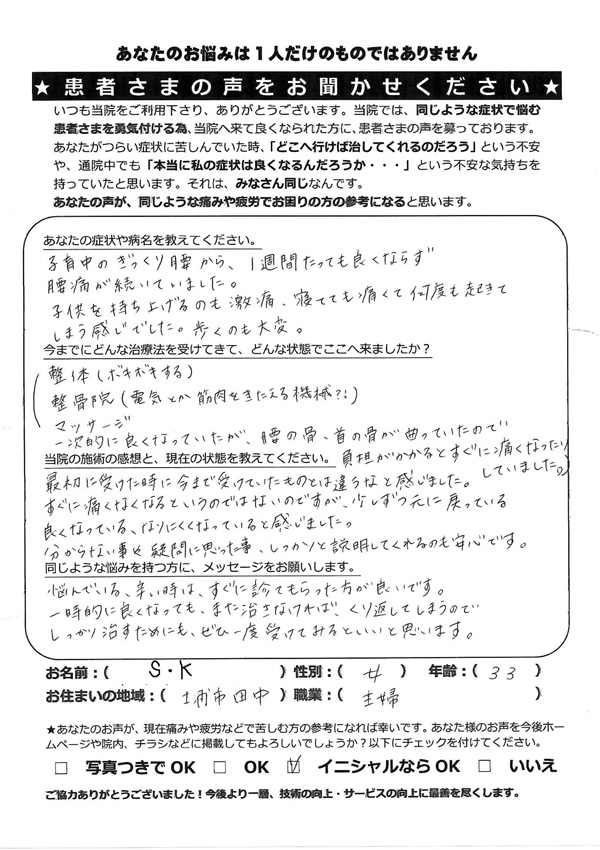 あなたのお悩みは１人だけのものではありません
★患者さまの声をお聞かせください★
いつも当院をご利用下さり、ありがとうございます。当院では、同じような症状で悩む
患者さまを勇気付ける為、当院へ来て良くなられた方に、患者さまの声を募っております。
あなたがつらい症状に苦しんでいた時、「どこへ行けば治してくれるのだろう」という不安
や、通院中でも「本当に私の症状は良くなるんだろうか・・・」という不安な気持ちを
持っていたと思います。それは、みなさん同じなんです。
あなたの声が、同じような痛みや疲労でお困りの方の参考になると思います。
あなたの症状や病名を教えてください。
子育中のぎっくり腰から、1週間たっても良くならず
腰痛が続いていました。
子供を持ち上げるのも激痛、寝てても痛くて何度も起きて
しまう感じでした。歩くのも大変。
今までにどんな治療法を受けてきて、どんな状態でここへ来ましたか？
整体（ボキボキする）
整骨院（電気とか筋肉をきたえる機械?!）
マッサージ
一次的に良くなっていたが、腰の骨、首の骨が曲っていたので
負担がかかるとすぐに痛くなったり
していました。
当院の施術の感想と、現在の状態を教えてください。
最初に受けた時に今まで受けていたものとは違うなと感じました。
すぐに痛くなくなるというのではないのですが、少しずつ元に戻っている
良くなっている、なりにくくなっていると感じました。
分からない事や疑問に思った事、しっかりと説明してくれるのも安心です。
同じような悩みを持つ方に、メッセージをお願いします。
悩んでいる、辛い時は、すぐに診てもらった方が良いです。
一時的に良くなっても、また治さなければ、くり返してしまうので
しっかり治すためにも、ぜひ一度受けてみるといいと思います。
お名前：( S・K ) 性別：( 女 ) 年齢：( 33 )
お住まいの地域：( 土浦市田中 ) 職業：( 主婦 )
★あなたのお声が、現在痛みや疲労などで苦しむ方の参考になれば幸いです。あなた様のお声を今後ホー
ムページや院内、チラシなどに掲載してもよろしいでしょうか？以下にチェックを付けてください。
□ 写真つきでOK □ OK ☑ イニシャルならOK □ いいえ
ご協力ありがとうございました！今後より一層、技術の向上・サービスの向上に最善を尽くします。